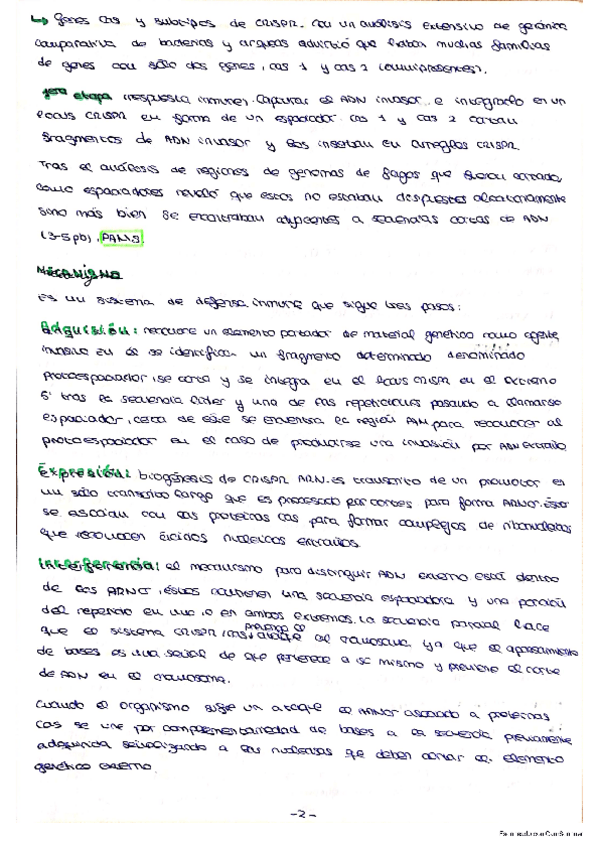 ↳ Genes Cas y subtipos de CRISPR. Con un análisis extensivo de genómica
comparativa de bacterias y arqueas advirtió que habían muchas familias
de genes con sólo dos genes, cas 1 y cas 2 (omnipresentes).
1era etapa (respuesta inmune). Capturar el ADN invasor e integrarlo en un
locus CRISPR en forma de un espaciador. Cas 1 y cas 2 cortan
fragmentos de ADN invasor y los insertan en arreglos CRISPR.
Tras el análisis de regiones de genomas de fagos que fueron
como espaciadores reveló que estos no estaban aleatoriamente
sino más bien se encontraban adyacentes a secuencias cortas de ADN
(3-5pb), PAMS.
Mecanismo
Es un sistema de defensa inmune que sigue tres pasos:
Adquisición: requiere un elemento portador de material genético como agente
invasivo en él se identifica un fragmento determinado denominado
protoespaciador, se corta y se integra en el locus CRISPR en el extremo
5' tras la secuencia líder y una de las repeticiones pasando a llamarse
espaciador, cerca de este se encuentra la región PAM para reconocer al
protoespaciador en el caso de producirse una invasión por ADN extraño.
Expresión: biogénesis de CRISPR ARN. Es transcrito de un promotor en
un sólo transcrito largo que es procesado por cortes para forma
se asocian con las proteínas cas para formar complejos de
que reconocen ácidos nucleicos extraños.
Interferencia: el mecanismo para distinguir ADN externo está dentro
de los ARNcr, éstos contienen una secuencia espaciadora y una porción
del repetido en uno o en ambos extremos. La secuencia parcial hace
que el sistema CRISPR/cas ataque al cromosoma, ya que el apareamiento
de bases es una señal de que pertenece a sí mismo y previene el corte
de ADN en el cromosoma.
Cuando el organismo sufre un ataque el ARNcr asociado a proteínas
cas se une por complementariedad de bases a la secuencia previamente
adquirida señalizando a las nucleasas que deben cortar el elemento
genético externo.
-2-
Escaneado con CamScanner